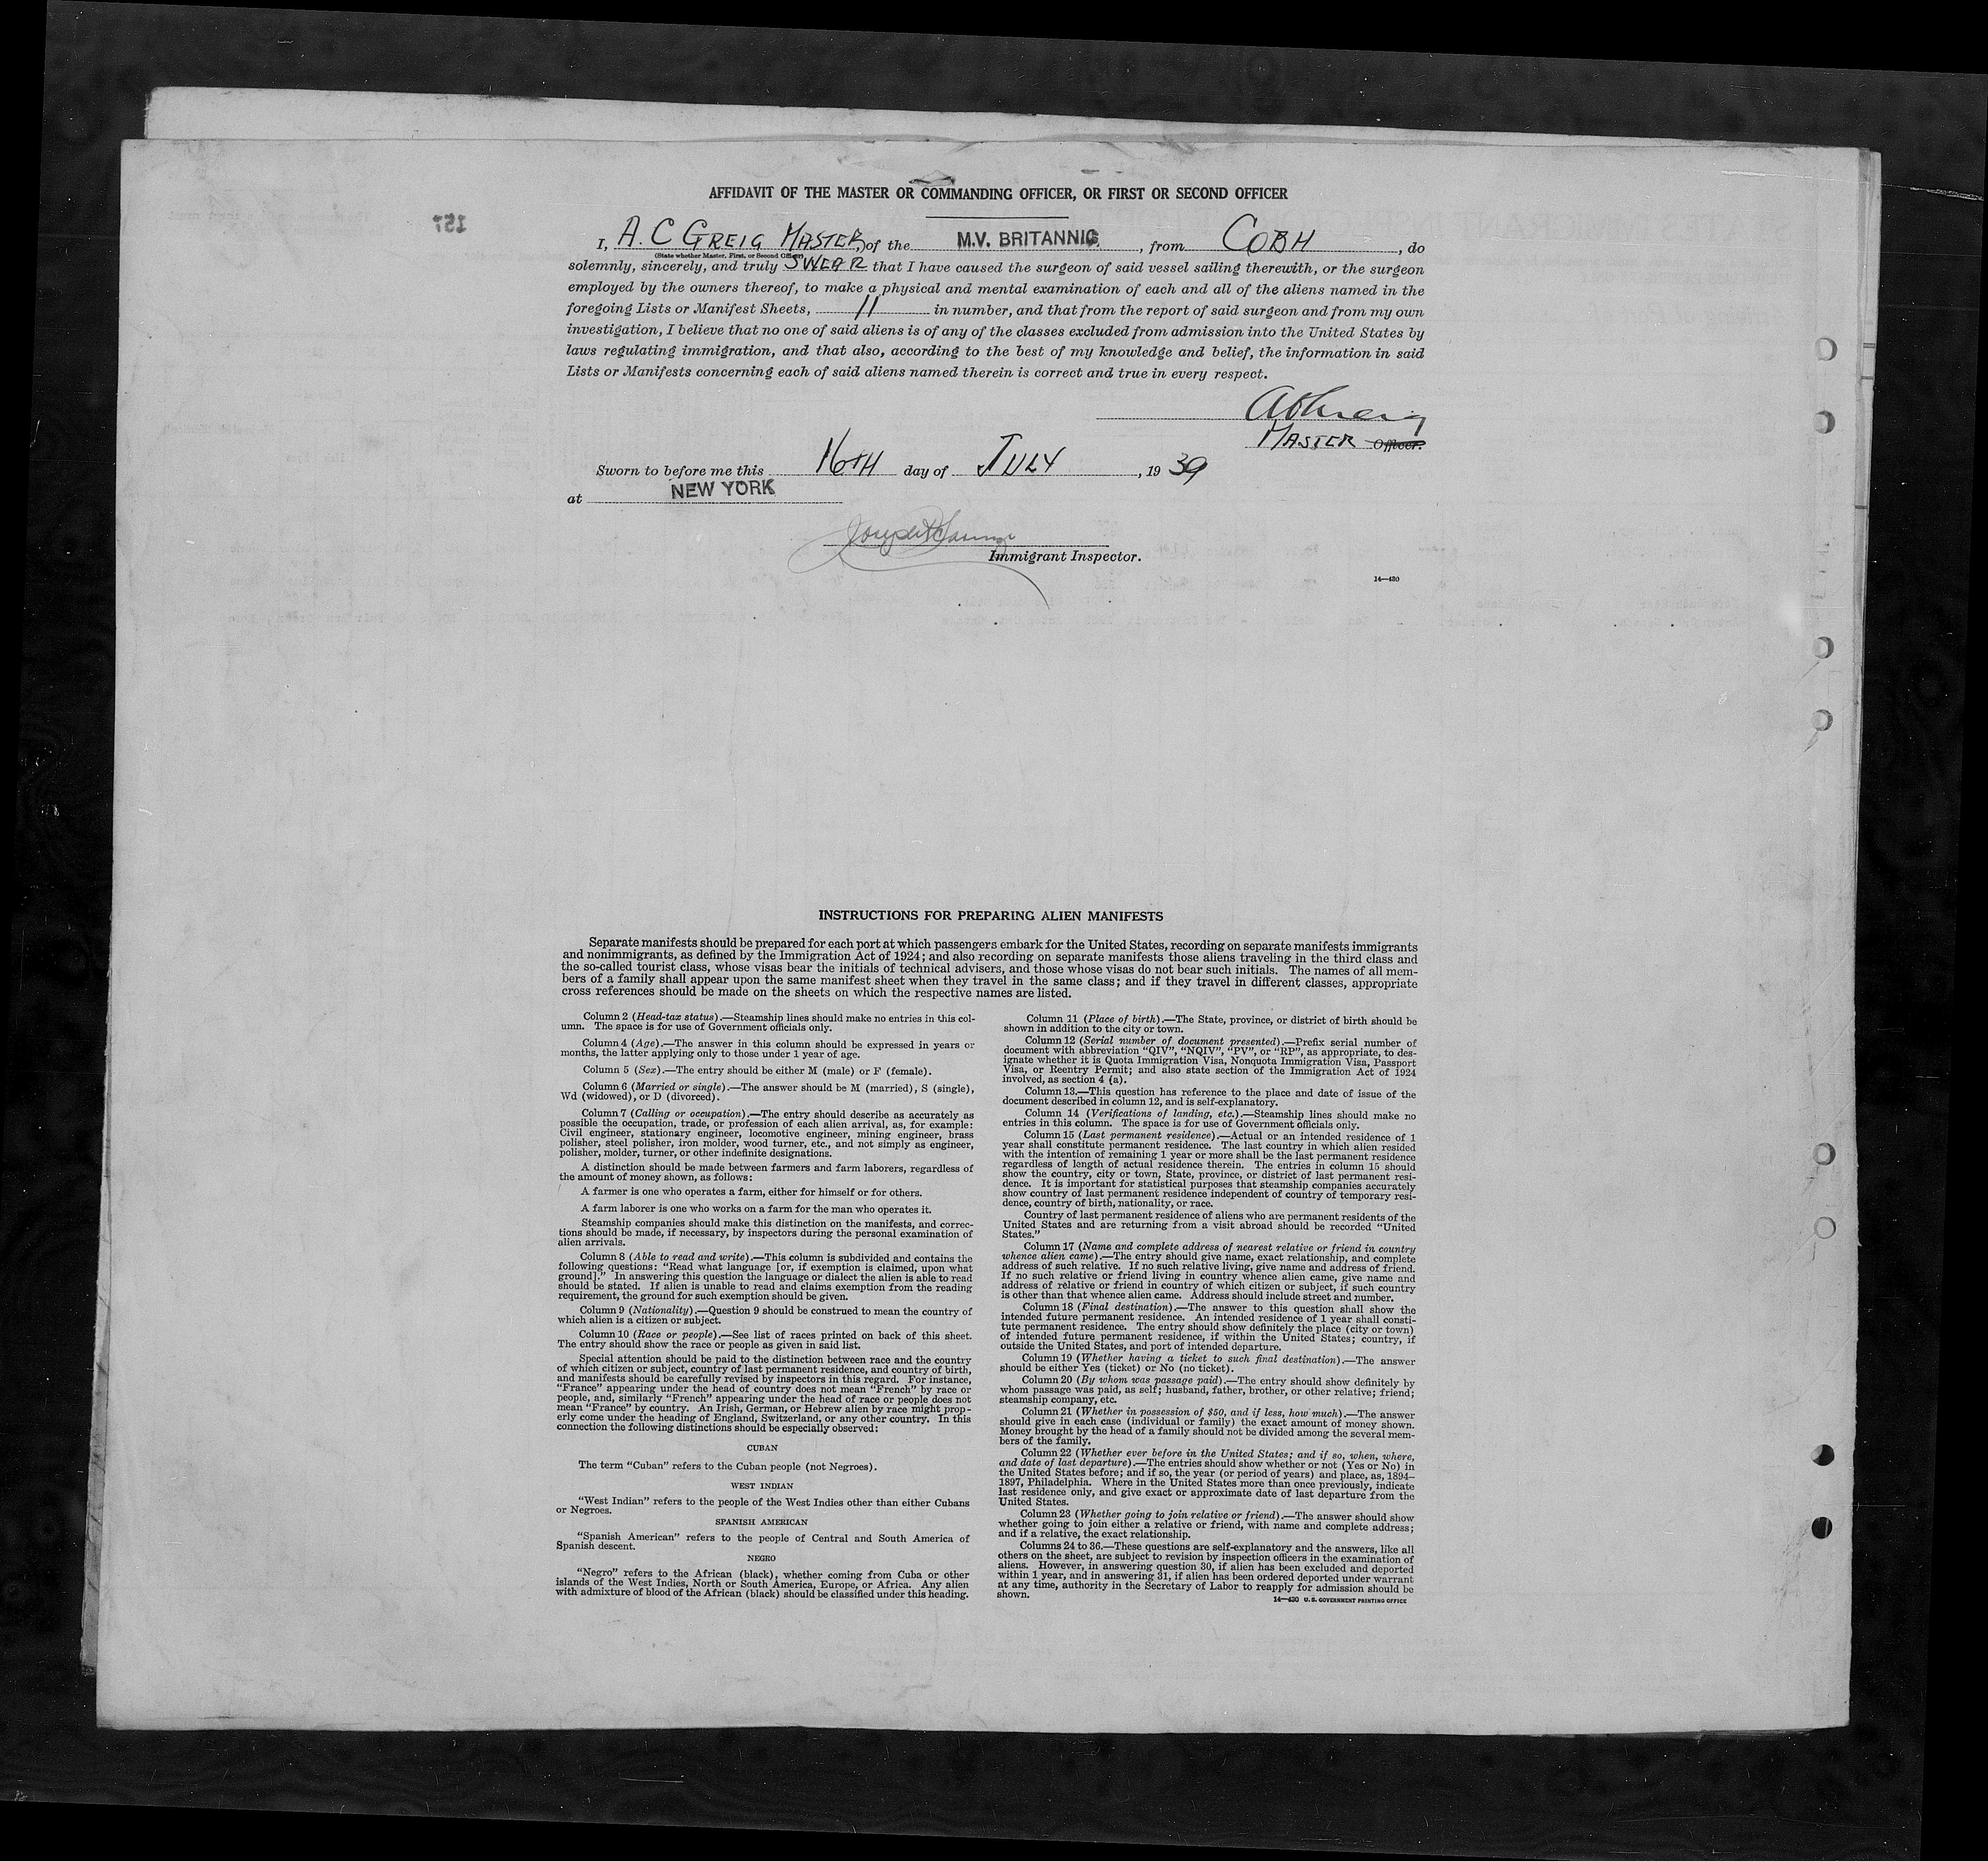 AFFIDAVIT OF THE MASTER OR COMMANDING OFFICER, OR FIRST OR SECOND OFFICER
I, A. C GREIG MASTER, of the M.V. BRITANNIC, from COBH, do
(State whether Master, First, or Second Officer)
solemnly, sincerely, and truly SWEAR that I have caused the surgeon of said vessel sailing therewith, or the surgeon
employed by the owners thereof, to make a physical and mental examination of each and all of the aliens named in the
foregoing Lists or Manifest Sheets, 11 in number, and that from the report of said surgeon and from my own
investigation, I believe that no one of said aliens is of any of the classes excluded from admission into the United States by
laws regulating immigration, and that also, according to the best of my knowledge and belief, the information in said
Lists or Manifests concerning each of said aliens named therein is correct and true in every respect.
ACGreig
MASTER Officer.
Sworn to before me this 16TH day of JULY, 19 39
at NEW YORK
Immigrant Inspector.
14—430
INSTRUCTIONS FOR PREPARING ALIEN MANIFESTS
Separate manifests should be prepared for each port at which passengers embark for the United States, recording on separate manifests immigrants
and nonimmigrants, as defined by the Immigration Act of 1924; and also recording on separate manifests those aliens traveling in the third class and
the so-called tourist class, whose visas bear the initials of technical advisers, and those whose visas do not bear such initials. The names of all mem-
bers of a family shall appear upon the same manifest sheet when they travel in the same class; and if they travel in different classes, appropriate
cross references should be made on the sheets on which the respective names are listed.
Column 2 (Head-tax status).—Steamship lines should make no entries in this col-
umn. The space is for use of Government officials only.
Column 4 (Age).—The answer in this column should be expressed in years or
months, the latter applying only to those under 1 year of age.
Column 5 (Sex).—The entry should be either M (male) or F (female).
Column 6 (Married or single).—The answer should be M (married), S (single),
Wd (widowed), or D (divorced).
Column 7 (Calling or occupation).—The entry should describe as accurately as
possible the occupation, trade, or profession of each alien arrival, as, for example:
Civil engineer, stationary engineer, locomotive engineer, mining engineer, brass
polisher, steel polisher, iron molder, wood turner, etc., and not simply as engineer,
polisher, molder, turner, or other indefinite designations.
A distinction should be made between farmers and farm laborers, regardless of
the amount of money shown, as follows:
A farmer is one who operates a farm, either for himself or for others.
A farm laborer is one who works on a farm for the man who operates it.
Steamship companies should make this distinction on the manifests, and correc-
tions should be made, if necessary, by inspectors during the personal examination of
alien arrivals.
Column 8 (Able to read and write).—This column is subdivided and contains the
following questions: “Read what language [or, if exemption is claimed, upon what
ground].” In answering this question the language or dialect the alien is able to read
should be stated. If alien is unable to read and claims exemption from the reading
requirement, the ground for such exemption should be given.
Column 9 (Nationality).—Question 9 should be construed to mean the country of
which alien is a citizen or subject.
Column 10 (Race or people).—See list of races printed on back of this sheet.
The entry should show the race or people as given in said list.
Special attention should be paid to the distinction between race and the country
of which citizen or subject, country of last permanent residence, and country of birth,
and manifests should be carefully revised by inspectors in this regard. For instance,
“France” appearing under the head of country does not mean “French” by race or
people, and, similarly “French” appearing under the head of race or people does not
mean “France” by country. An Irish, German, or Hebrew alien by race might prop-
erly come under the heading of England, Switzerland, or any other country. In this
connection the following distinctions should be especially observed:
CUBAN
The term “Cuban” refers to the Cuban people (not Negroes).
WEST INDIAN
“West Indian” refers to the people of the West Indies other than either Cubans
or Negroes.
SPANISH AMERICAN
“Spanish American” refers to the people of Central and South America of
Spanish descent.
NEGRO
“Negro” refers to the African (black), whether coming from Cuba or other
islands of the West Indies, North or South America, Europe, or Africa. Any alien
with admixture of blood of the African (black) should be classified under this heading.
Column 11 (Place of birth).—The State, province, or district of birth should be
shown in addition to the city or town.
Column 12 (Serial number of document presented).—Prefix serial number of
document with abbreviation “QIV”, “NQIV”, “PV”, or “RP”, as appropriate, to des-
ignate whether it is Quota Immigration Visa, Nonquota Immigration Visa, Passport
Visa, or Reentry Permit; and also state section of the Immigration Act of 1924
involved, as section 4 (a).
Column 13.—This question has reference to the place and date of issue of the
document described in column 12, and is self-explanatory.
Column 14 (Verifications of landing, etc.).—Steamship lines should make no
entries in this column. The space is for use of Government officials only.
Column 15 (Last permanent residence).—Actual or an intended residence of 1
year shall constitute permanent residence. The last country in which alien resided
with the intention of remaining 1 year or more shall be the last permanent residence
regardless of length of actual residence therein. The entries in column 15 should
show the country, city or town, State, province, or district of last permanent resi-
dence. It is important for statistical purposes that steamship companies accurately
show country of last permanent residence independent of country of temporary resi-
dence, country of birth, nationality, or race.
Country of last permanent residence of aliens who are permanent residents of the
United States and are returning from a visit abroad should be recorded “United
States.”
Column 17 (Name and complete address of nearest relative or friend in country
whence alien came).—The entry should give name, exact relationship, and complete
address of such relative. If no such relative living, give name and address of friend.
If no such relative or friend living in country whence alien came, give name and
address of relative or friend in country of which citizen or subject, if such country
is other than that whence alien came. Address should include street and number.
Column 18 (Final destination).—The answer to this question shall show the
intended future permanent residence. An intended residence of 1 year shall consti-
tute permanent residence. The entry should show definitely the place (city or town)
of intended future permanent residence, if within the United States; country, if
outside the United States, and port of intended departure.
Column 19 (Whether having a ticket to such final destination).—The answer
should be either Yes (ticket) or No (no ticket).
Column 20 (By whom was passage paid).—The entry should show definitely by
whom passage was paid, as self; husband, father, brother, or other relative; friend;
steamship company, etc.
Column 21 (Whether in possession of $50, and if less, how much).—The answer
should give in each case (individual or family) the exact amount of money shown.
Money brought by the head of a family should not be divided among the several mem-
bers of the family.
Column 22 (Whether ever before in the United States; and if so, when, where,
and date of last departure).—The entries should show whether or not (Yes or No) in
the United States before; and if so, the year (or period of years) and place, as, 1894–
1897, Philadelphia. Where in the United States more than once previously, indicate
last residence only, and give exact or approximate date of last departure from the
United States.
Column 23 (Whether going to join relative or friend).—The answer should show
whether going to join either a relative or friend, with name and complete address;
and if a relative, the exact relationship.
Columns 24 to 36.—These questions are self-explanatory and the answers, like all
others on the sheet, are subject to revision by inspection officers in the examination of
aliens. However, in answering question 30, if alien has been excluded and deported
within 1 year, and in answering 31, if alien has been ordered deported under warrant
at any time, authority in the Secretary of Labor to reapply for admission should be
shown.
14—430 U. S. GOVERNMENT PRINTING OFFICE